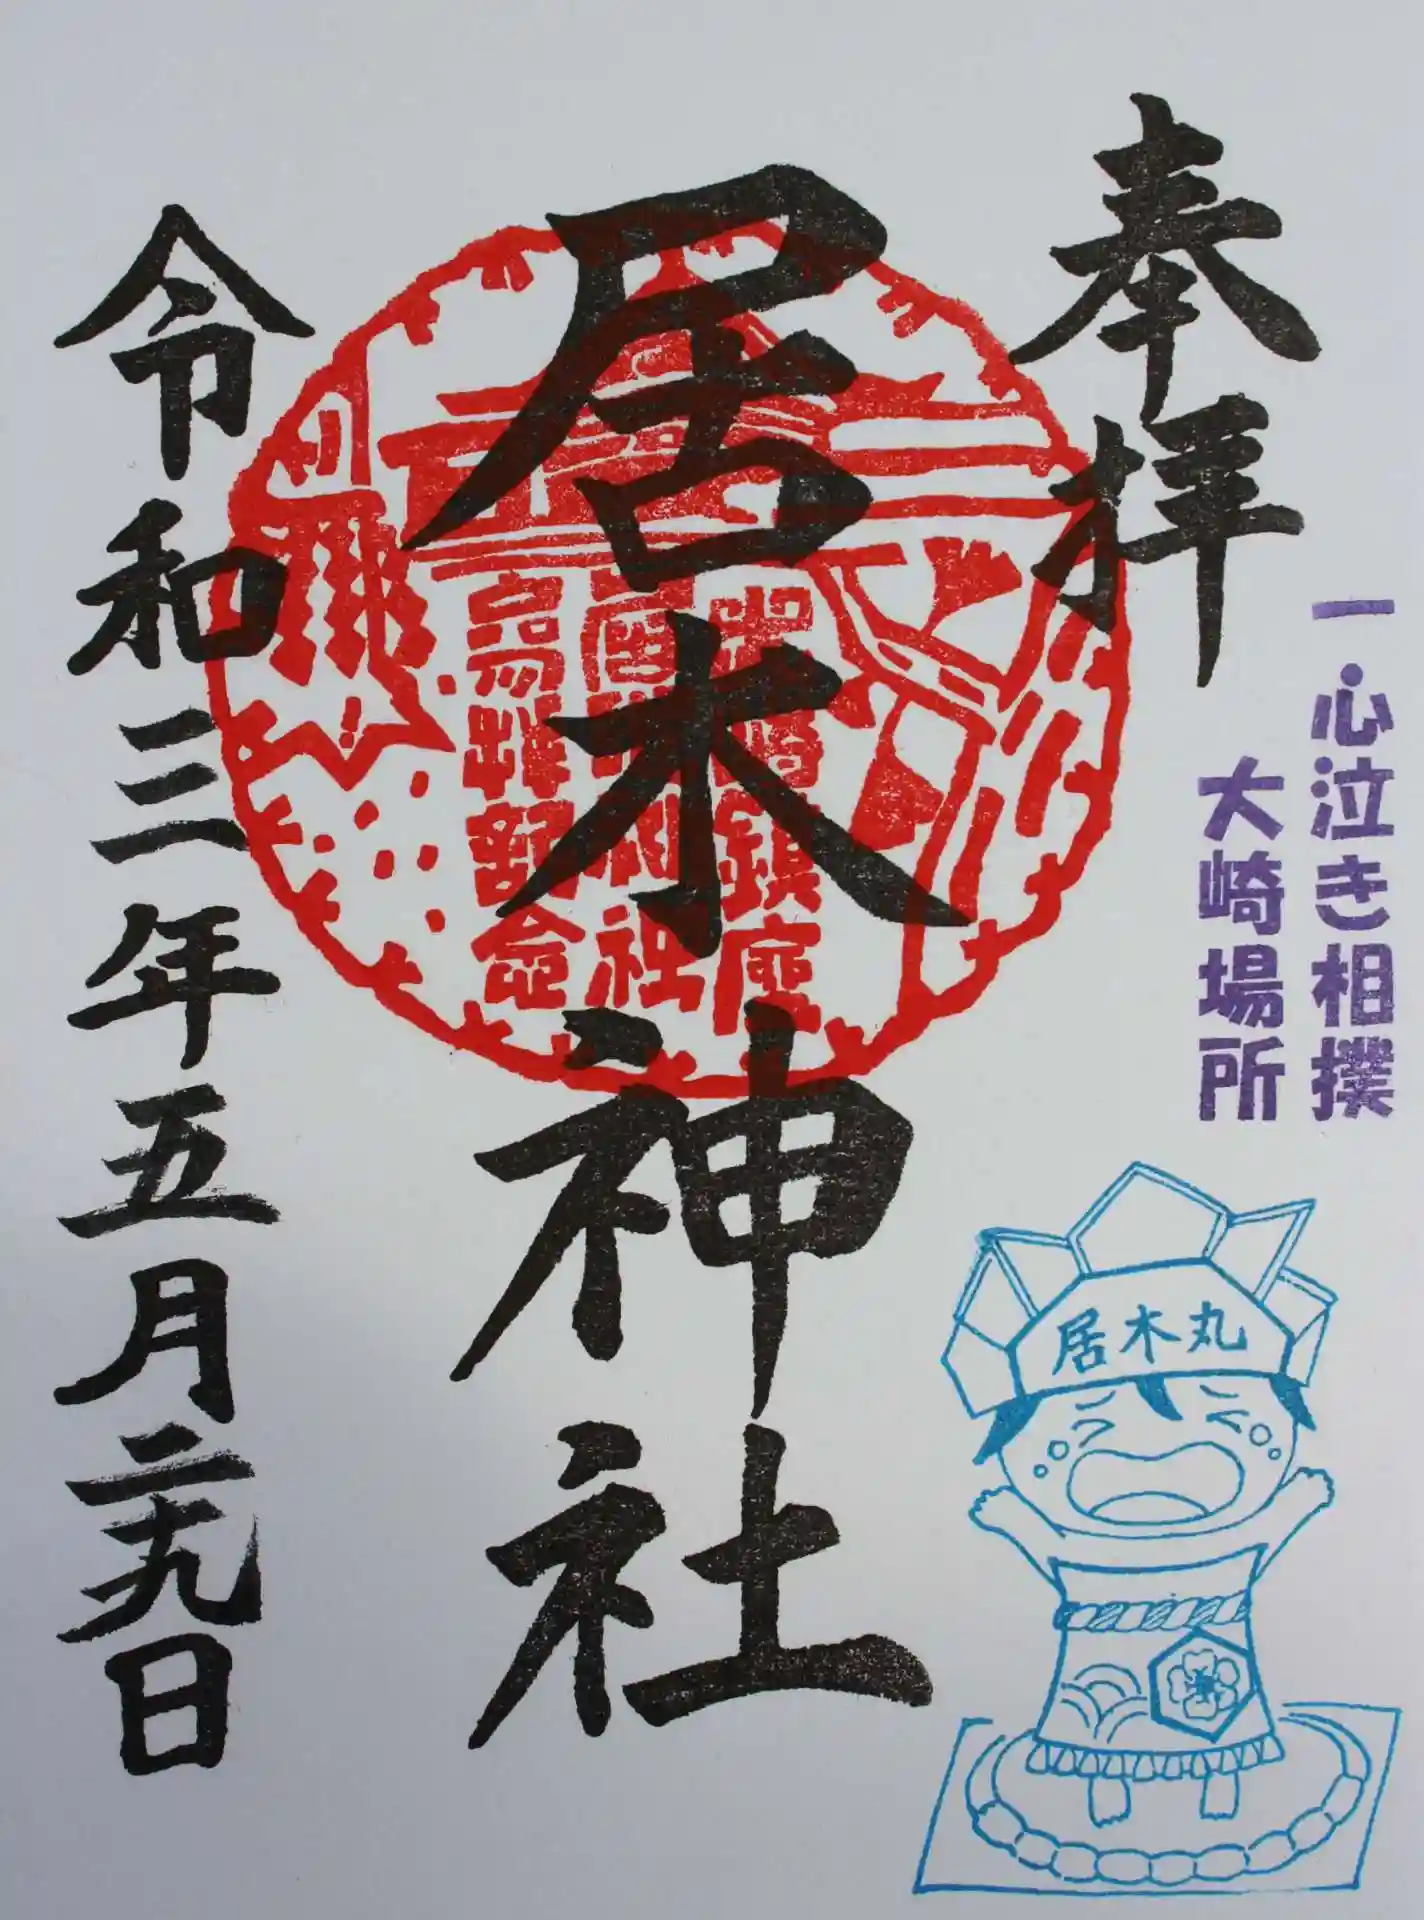 奉拝
一心泣き相撲
大崎場所
居木神社
鎮座
神社
念
令和三年五月二十九日
居木丸